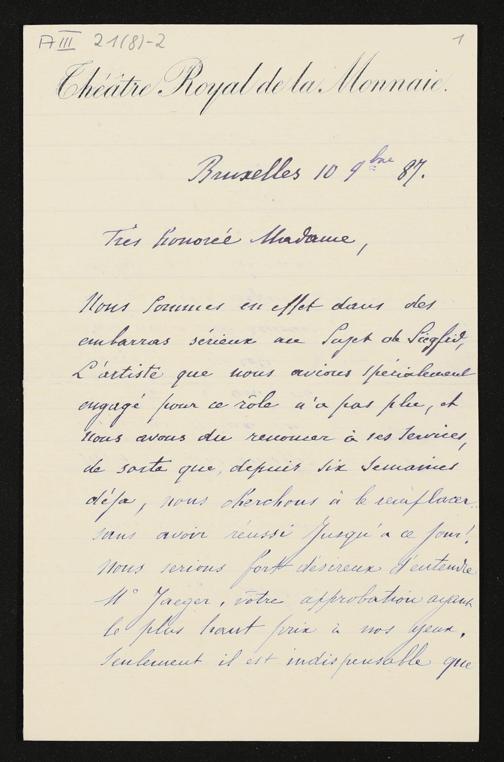 A III 21(8)-2
1
Théâtre Royal de la Monnaie.
Bruxelles 10 9bre 87.
Très honorée Madame,
Nous sommes en effet dans des
embarras sérieux au sujet de Siegfried,
L'artiste que nous avions spécialement
engagé pour ce rôle n'a pas plu, et
nous avons du renoncer à ses services,
de sorte que, depuis six semaines
déja, nous cherchons à le remplacer
sans avoir réussi jusqu'à ce jour!
Nous serions fort désireux d'entendre
Mr Jaeger, vôtre approbation ayant
le plus haut prix à nos yeux.
Seulement il est indispensable que